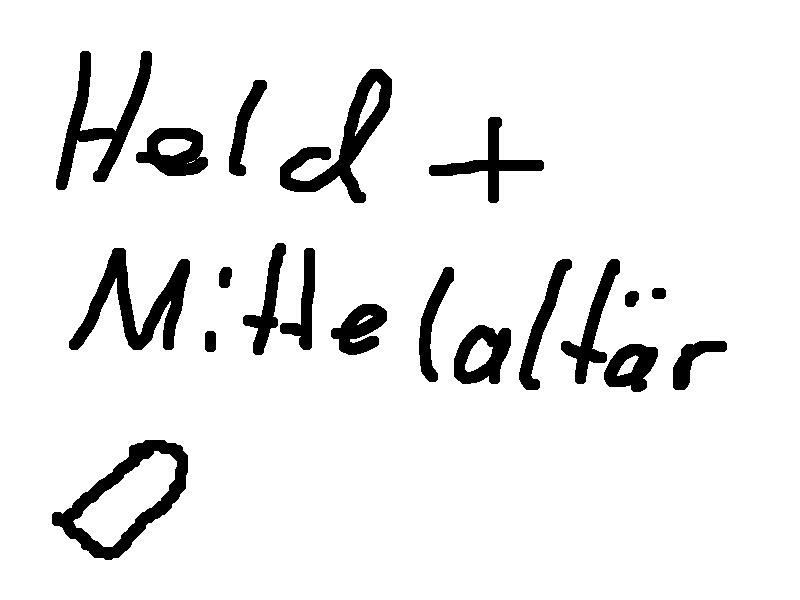 Held +
Mittelaltär